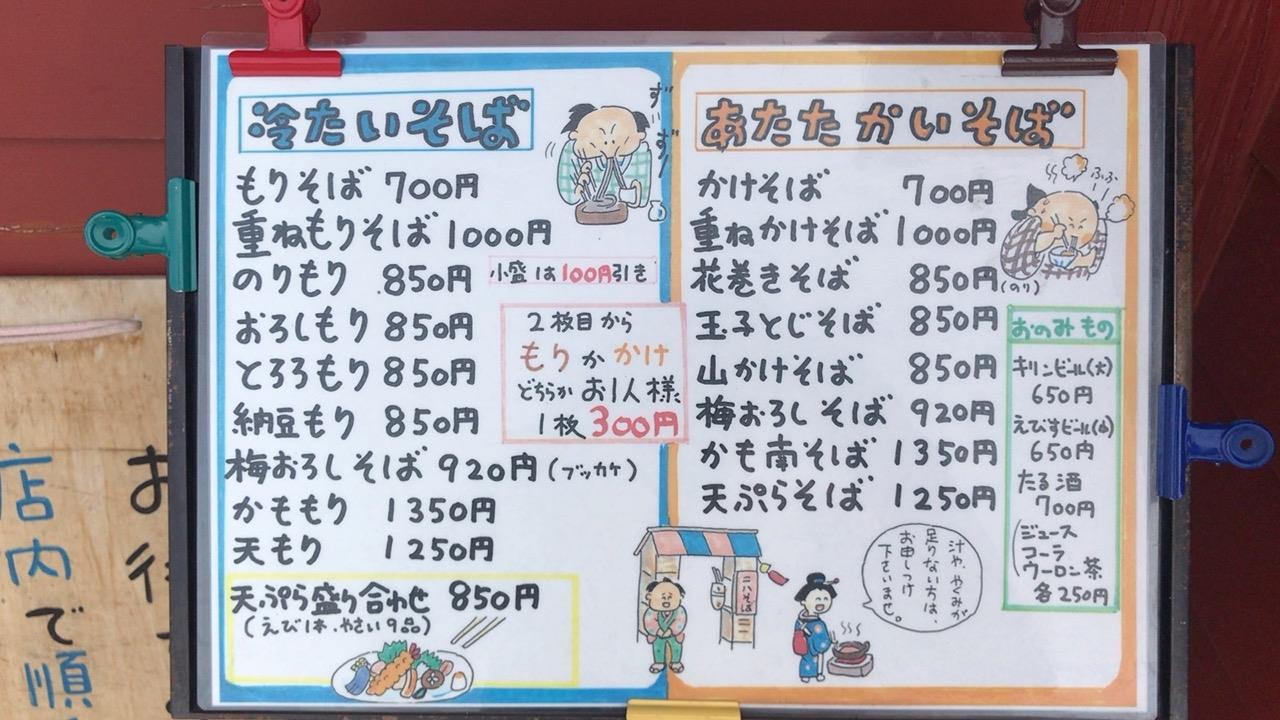 冷たいそば
ずずず
もりそば 700円
重ねもりそば 1000円
のりもり 850円
小盛は100円引き
おろしもり 850円
とろろもり 850円
納豆もり 850円
2枚目から
もりかかけ
どちらかお1人様
1枚300円
梅おろしそば 920円(ブッカケ)
かももり 1350円
天もり 1250円
天ぷら盛り合わせ 850円
(えび1本、やさい9品)
あたたかいそば
ふふ
かけそば 700円
重ねかけそば 1000円
花巻きそば 850円(のり)
玉子とじそば 850円
山かけそば 850円
梅おろしそば 920円
かも南そば 1350円
天ぷらそば 1250円
おのみもの
キリンビール(大)
650円
えびすビール(小)
650円
たる酒
700円
ジュース
コーラ
ウーロン茶
各250円
二八そば
汁や、やくみが
足りない方は、
お申しつけ
下さいませ。
店内で順
お待